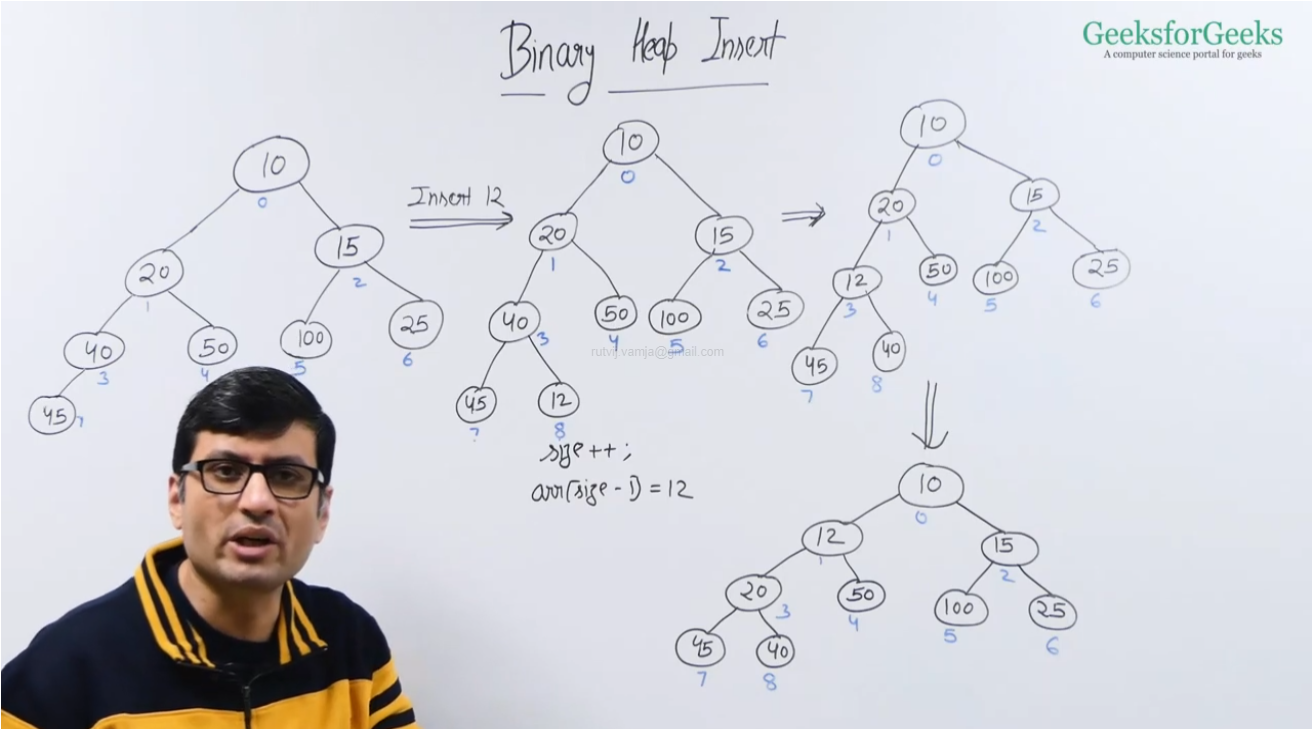 Binary Heap Insert
GeeksforGeeks
A computer science portal for geeks
10
0
20
1
15
2
40
3
50
4
100
5
25
6
45
7
Insert 12
10
0
20
1
15
2
40
3
50
4
100
5
25
6
45
7
12
8
rutvij.vamja@gmail.com
size++;
arr[size-1] = 12
10
0
20
1
15
2
12
3
50
4
100
5
25
6
45
7
40
8
10
0
12
1
15
2
20
3
50
4
100
5
25
6
45
7
40
8